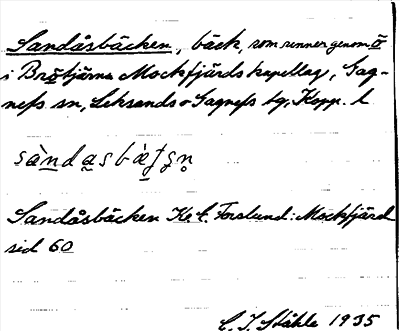 Sandåsbäcken, bäck, som rinner genom ö
i Brötjärna Mockfjärds kapellag, Gag-
nefs sn, Leksands o Gagnefs tg, Kopp. l.
Sandåsbäcken K.E. Forslund: Mockfjärd
sid 60
C. I. Ståhle 1935